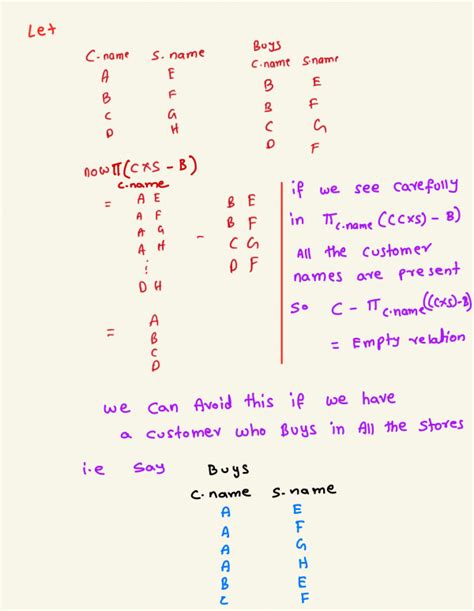 Let
C.name S.name
A E
B F
C G
D H
Buys
C.name S.name
B E
B F
C G
D F
now π(C×S - B)
C.name
= A E
A F
A G
A H
⋮
D H
- B E
B F
C G
D F
= A
B
C
D
if we see carefully
in π C.name ((C×S) - B)
All the customer
names are present
So C - π C.name((C×S)-B)
= Empty relation
we can Avoid this if we have
a customer who Buys in All the stores
i.e say Buys
C.name S-name
A E
A F
A G
A H
B E
C F